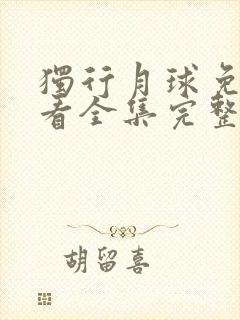 獨行月球免
看全集完整
胡留喜